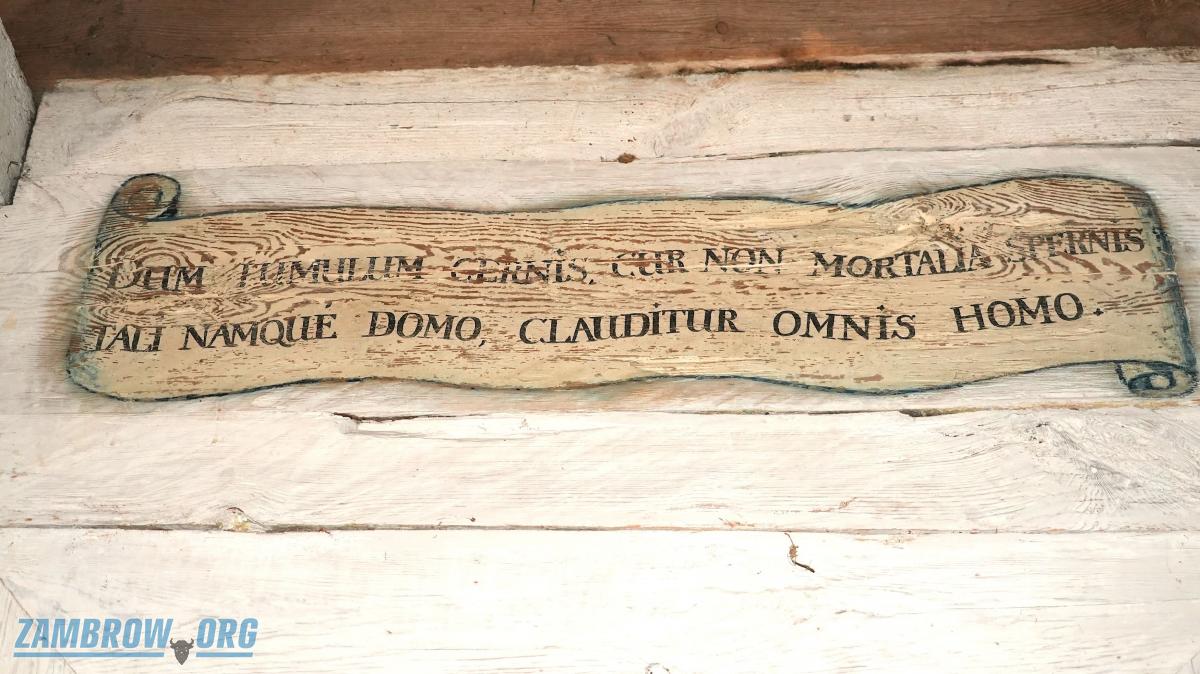 DUM TUMULUM CERNIS, CUR NON MORTALIA SPERNIS
TALI NAMQUÉ DOMO, CLAUDITUR OMNIS HOMO.
ZAMBROW.ORG